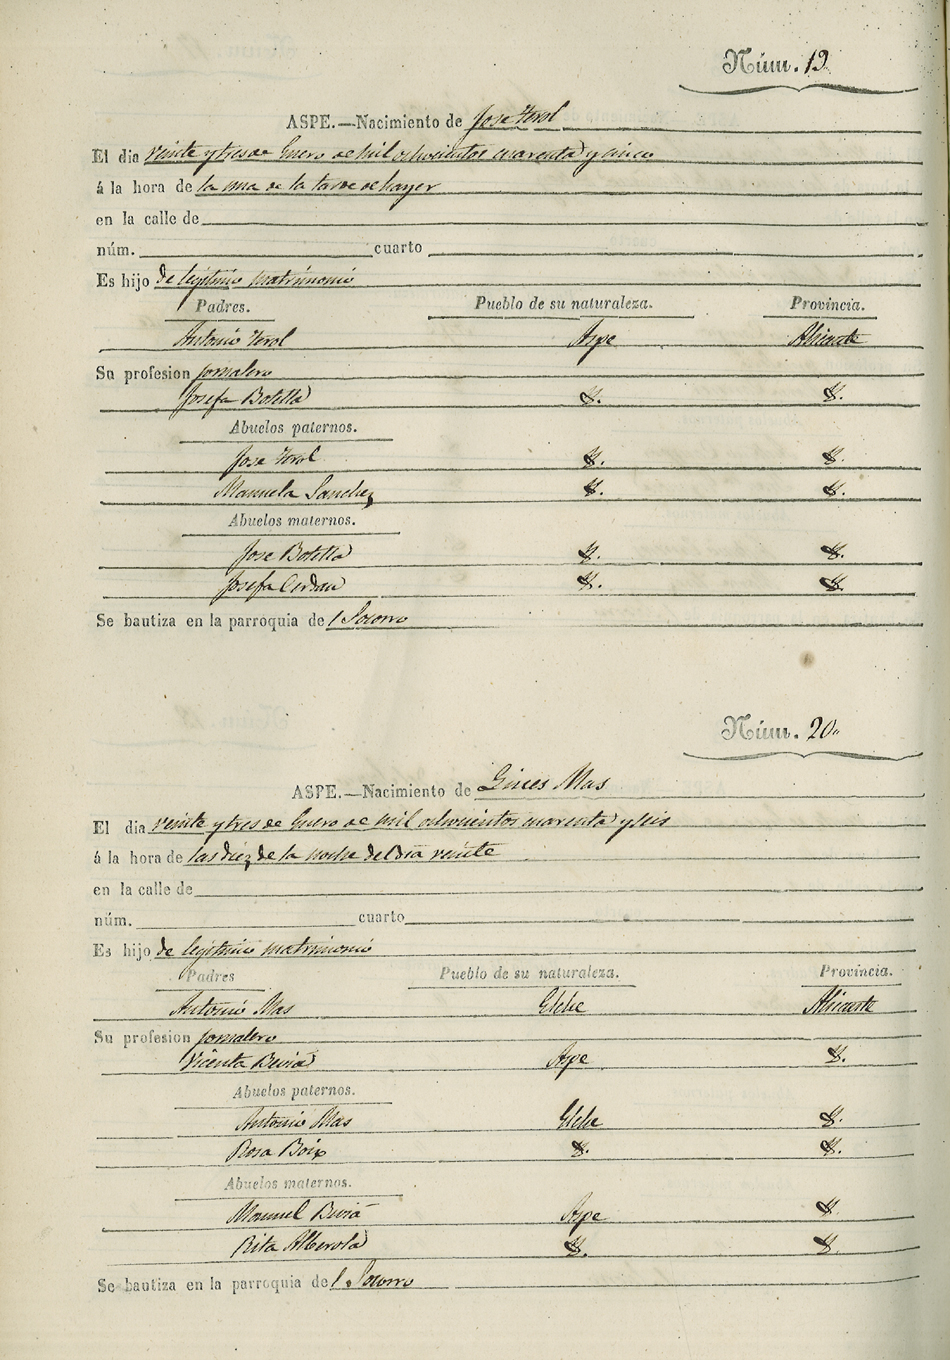 Núm. 19
ASPE.—Nacimiento de Jose Terol
El dia veinte y tres de Enero de mil ochocientos cuarenta y cinco
á la hora de la una de la tarde de hayer
en la calle de
núm. cuarto
Es hijo de legitimo matrimonio
Padres. Pueblo de su naturaleza. Provincia.
Antonio Terol Aspe Alicante
Su profesion jornalero
Josefa Botella Y. Y.
Abuelos paternos.
Jose Terol Y. Y.
Manuela Sanchez Y. Y.
Abuelos maternos.
Jose Botella Y. Y.
Josefa Cerdan Y. Y.
Se bautiza en la parroquia de l Socorro
Núm. 20
ASPE.—Nacimiento de Gines Mas
El dia veinte y tres de Enero de mil ochocientos cuarenta y seis
á la hora de las diez de la noche del dia veinte
en la calle de
núm. cuarto
Es hijo de legitimo matrimonio
Padres Pueblo de su naturaleza. Provincia.
Antonio Mas Elche Alicante
Su profesion jornalero
Vicenta Beviá Aspe Y.
Abuelos paternos.
Antonio Mas Elche Y.
Rosa Boix Y. Y.
Abuelos maternos.
Manuel Beviá Aspe Y.
Rita Alberola Y. Y.
Se bautiza en la parroquia de l Socorro